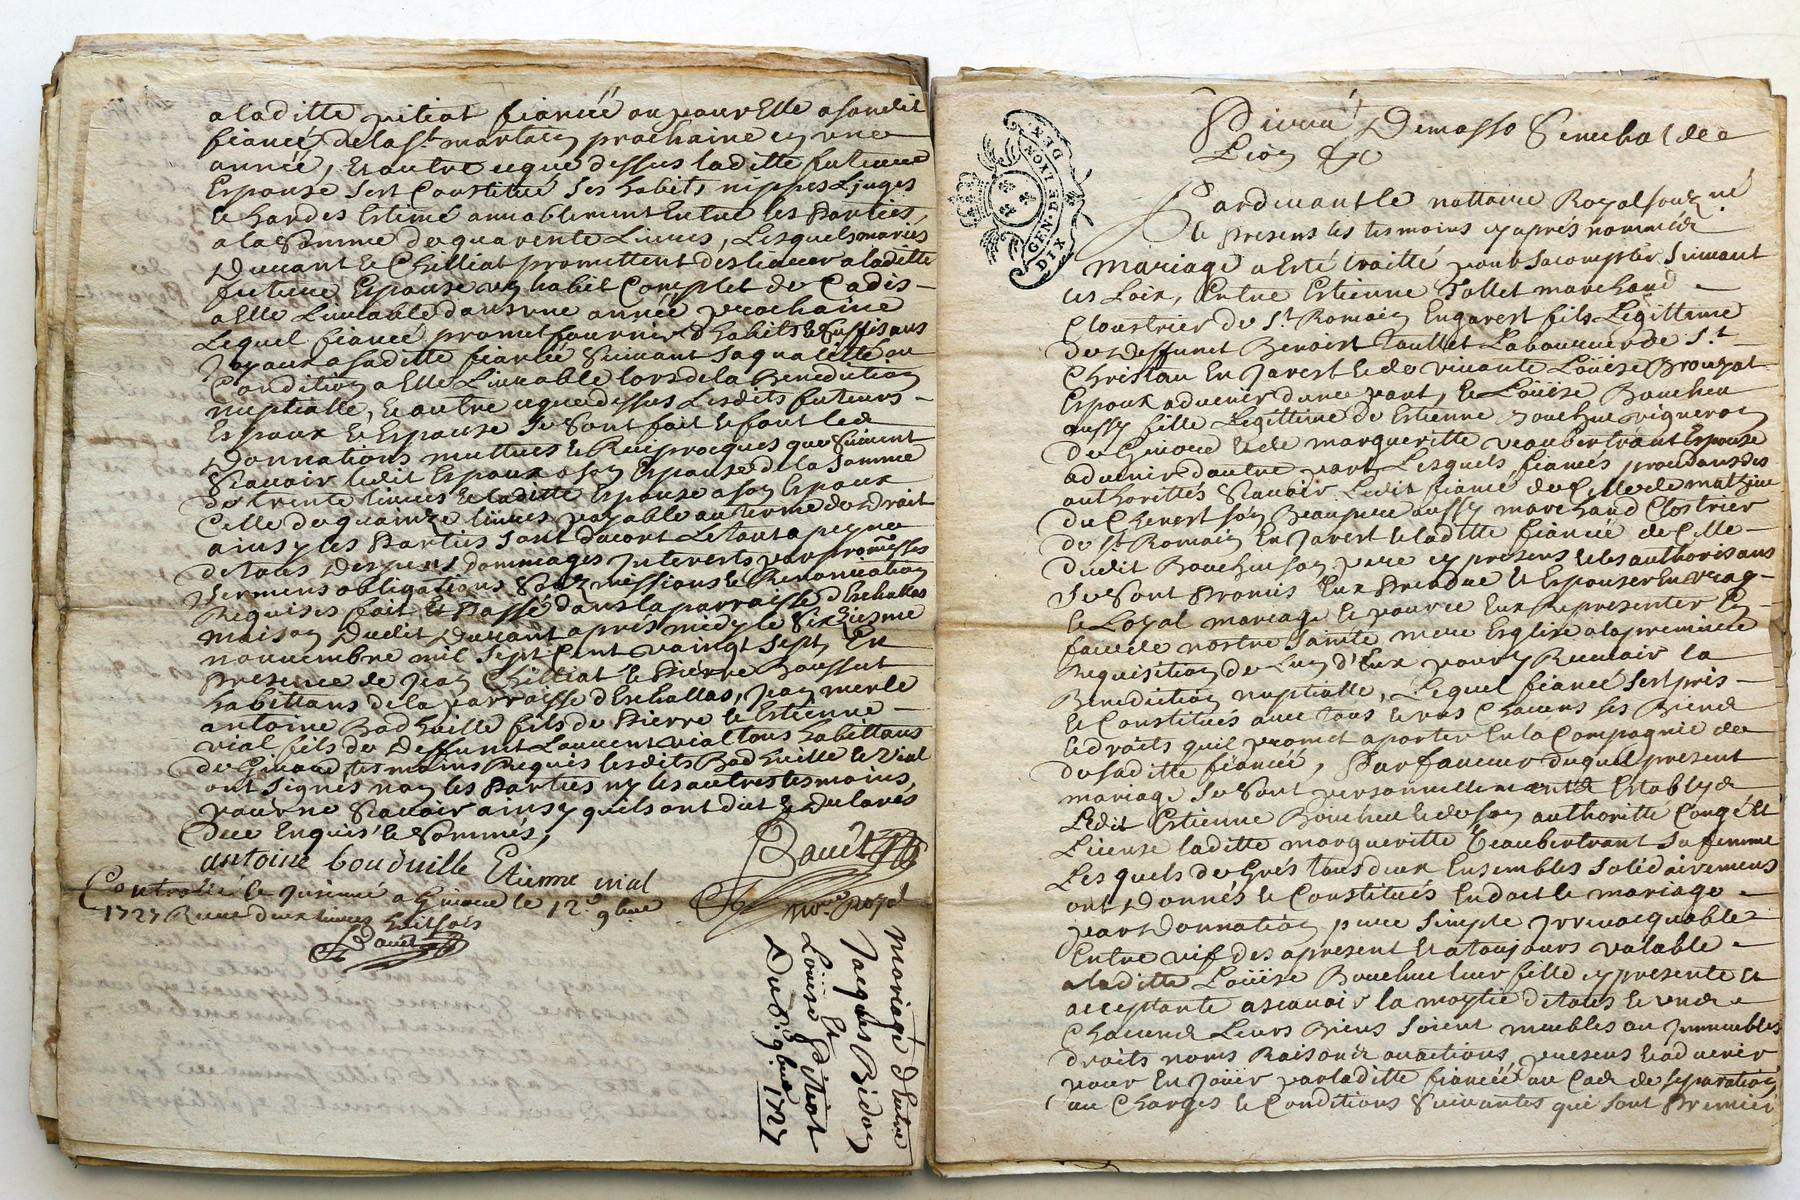 a laditte pitiot fiancéé ou pour Elle a sondit
fiancé de la St. martin prochaine en une
année, Et outre ce que dessus laditte future
Espouse sest Constitué ses habits, nippes Linges
le hardes Estimé amiablement Entre les Parties,
a la Somme de quarente Livres, Lesquels mariés
Duvant le Chilliat promettent deslivrer a laditte
future Espouse un habit Complet de Cadis
a Elle Livrable dans une année prochaine
Lequel fiancé promet fournir d'habits & suffisans
Joyaux a saditte fiancéé Suivant sa qualitté ou
Condition a Elle Livrable lors de la Benediction
nuptialle, & outre ce que dessus Lesdits futeurs
Espoux & Espouse Se Sont fait & font les
Donnations mutues & Reciprocques que Suivent
Scavoir ledit Espoux a son Espouse de la Somme
de trente livres & laditte Espouse a son Espoux
Celle de quainze livres payable au terme de droit
ainsy les Parties Sont dacort Le tout a peyne
de tous Despens dommages Interests par promesses
Sermens obligations Soubmissions & Renonciation
Requises fait Et Passé dans la parroisse d'Eschallas
maison Dudit Duvant apres midy le Sixziesme
nouvembre mil Sept Cent vaingt Sept, En
Presence de Jean Chilliat & Pierre Boussut
habittans de la parroisse d'Eschallas, Jean merle
antoine Bad huille fils de Pierre & Estienne
vial fils de Deffunct Laurent vial tous habittans
de Givord tesmoins Requis lesdits Bad huille & Vial
ont Signés non les Parties ny les autres tesmoins,
pour ne Scavoir ainsy quils ont dit & declarés
Duc Enquis & Sommés,
antoine bouduille Etienne vial
Bauet
Nore. Royal
Controllé le Jusimé a Givord le 12e. 9bre
1727 Receu deux livres huit sols
Bauet
mariage d'Entre
Jacques Bidon
Et
Loüise Pitiot
Du 6e. 9bre 1727
Pierre Demasso Senechal de
Lion &c
GEN. DE LYON
DIX DEN.
Pardevant le nottaire Royal soubzné
le presens les tesmoins cy aprés nommés
mariage a Esté traitté pour Sacomplir Suivant
les Loix, Entre Estienne Tollet marchand
Cloustrier de St. Romain En Jarest fils Legittime
de Deffunct Benoist Toullet Laboureur de St.
Christau En Jarest & de vivante Loüise Brouzat
Espoux advenir d'une part, & Loüise Boucheu
aussy fille Legittime de Estienne Boucheu vigneron
de Givord & de margueritte veaubertrant Espouse
advenir d'autre part Lesquels fiancés procedans des
authorittés Scavoir Ledit fiancé de Celle de mathieu
du Chenest son Beaupere aussy marchand Clostrier
de St. Romain En Jarest & laditte fiancéé de Celle
dudit Boucheu son pere cy presens & les authorisans
Se Sont Promis Eux Prendre & Espouser En vray
& Loyal mariage & pource Eux Representer En
face de nostre Sainte mere Esglise a la premiere
Requisition de Lun d'Eux pour y Recevoir la
Benediction nuptialle, Lequel fiancé sest pris
& Constitués avec tous & vns Chacuns ses Biens
& droits quil promet aporter En la Compagnie de
de saditte fiancéé, Par faveur duquel present
mariage Se Sont personnellement Establys
Ledit Estienne Boucheu & de son authoritté Congé Et
License laditte margueritte Veaubertrant sa femme
Les quels de Grés tous deux Ensembles Solidairement
ont donnés & Constitués En dot & mariage
par donnation pure Simple Irrevocquable
Entre vif des apresent & a toujours valable
a laditte Loüise Boucheu leur fille cy presente Et
acceptante a scavoir la moytié de tous & vns
Chacuns Leurs Biens Soient meubles ou Immeubles
droits noms Raisons ou actions, presens & advenir
pour En Joüir par laditte fiancéé au Cas de separation
au Charges & Conditions Suivantes qui sont Premier